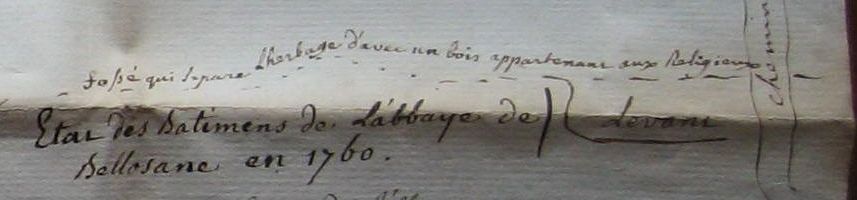 fossé qui separe Lherbage d'avec un bois appartenant aux Religieux
chemin
Etat des Batimens de L'abbaye de
Levant
Bellosane en 1760.